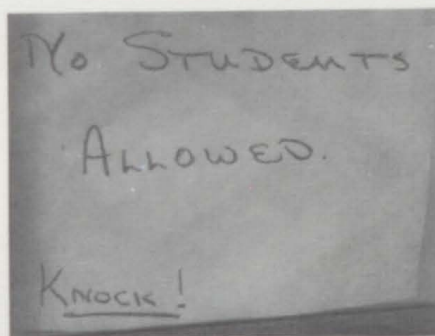 No Students
Allowed.
Knock!